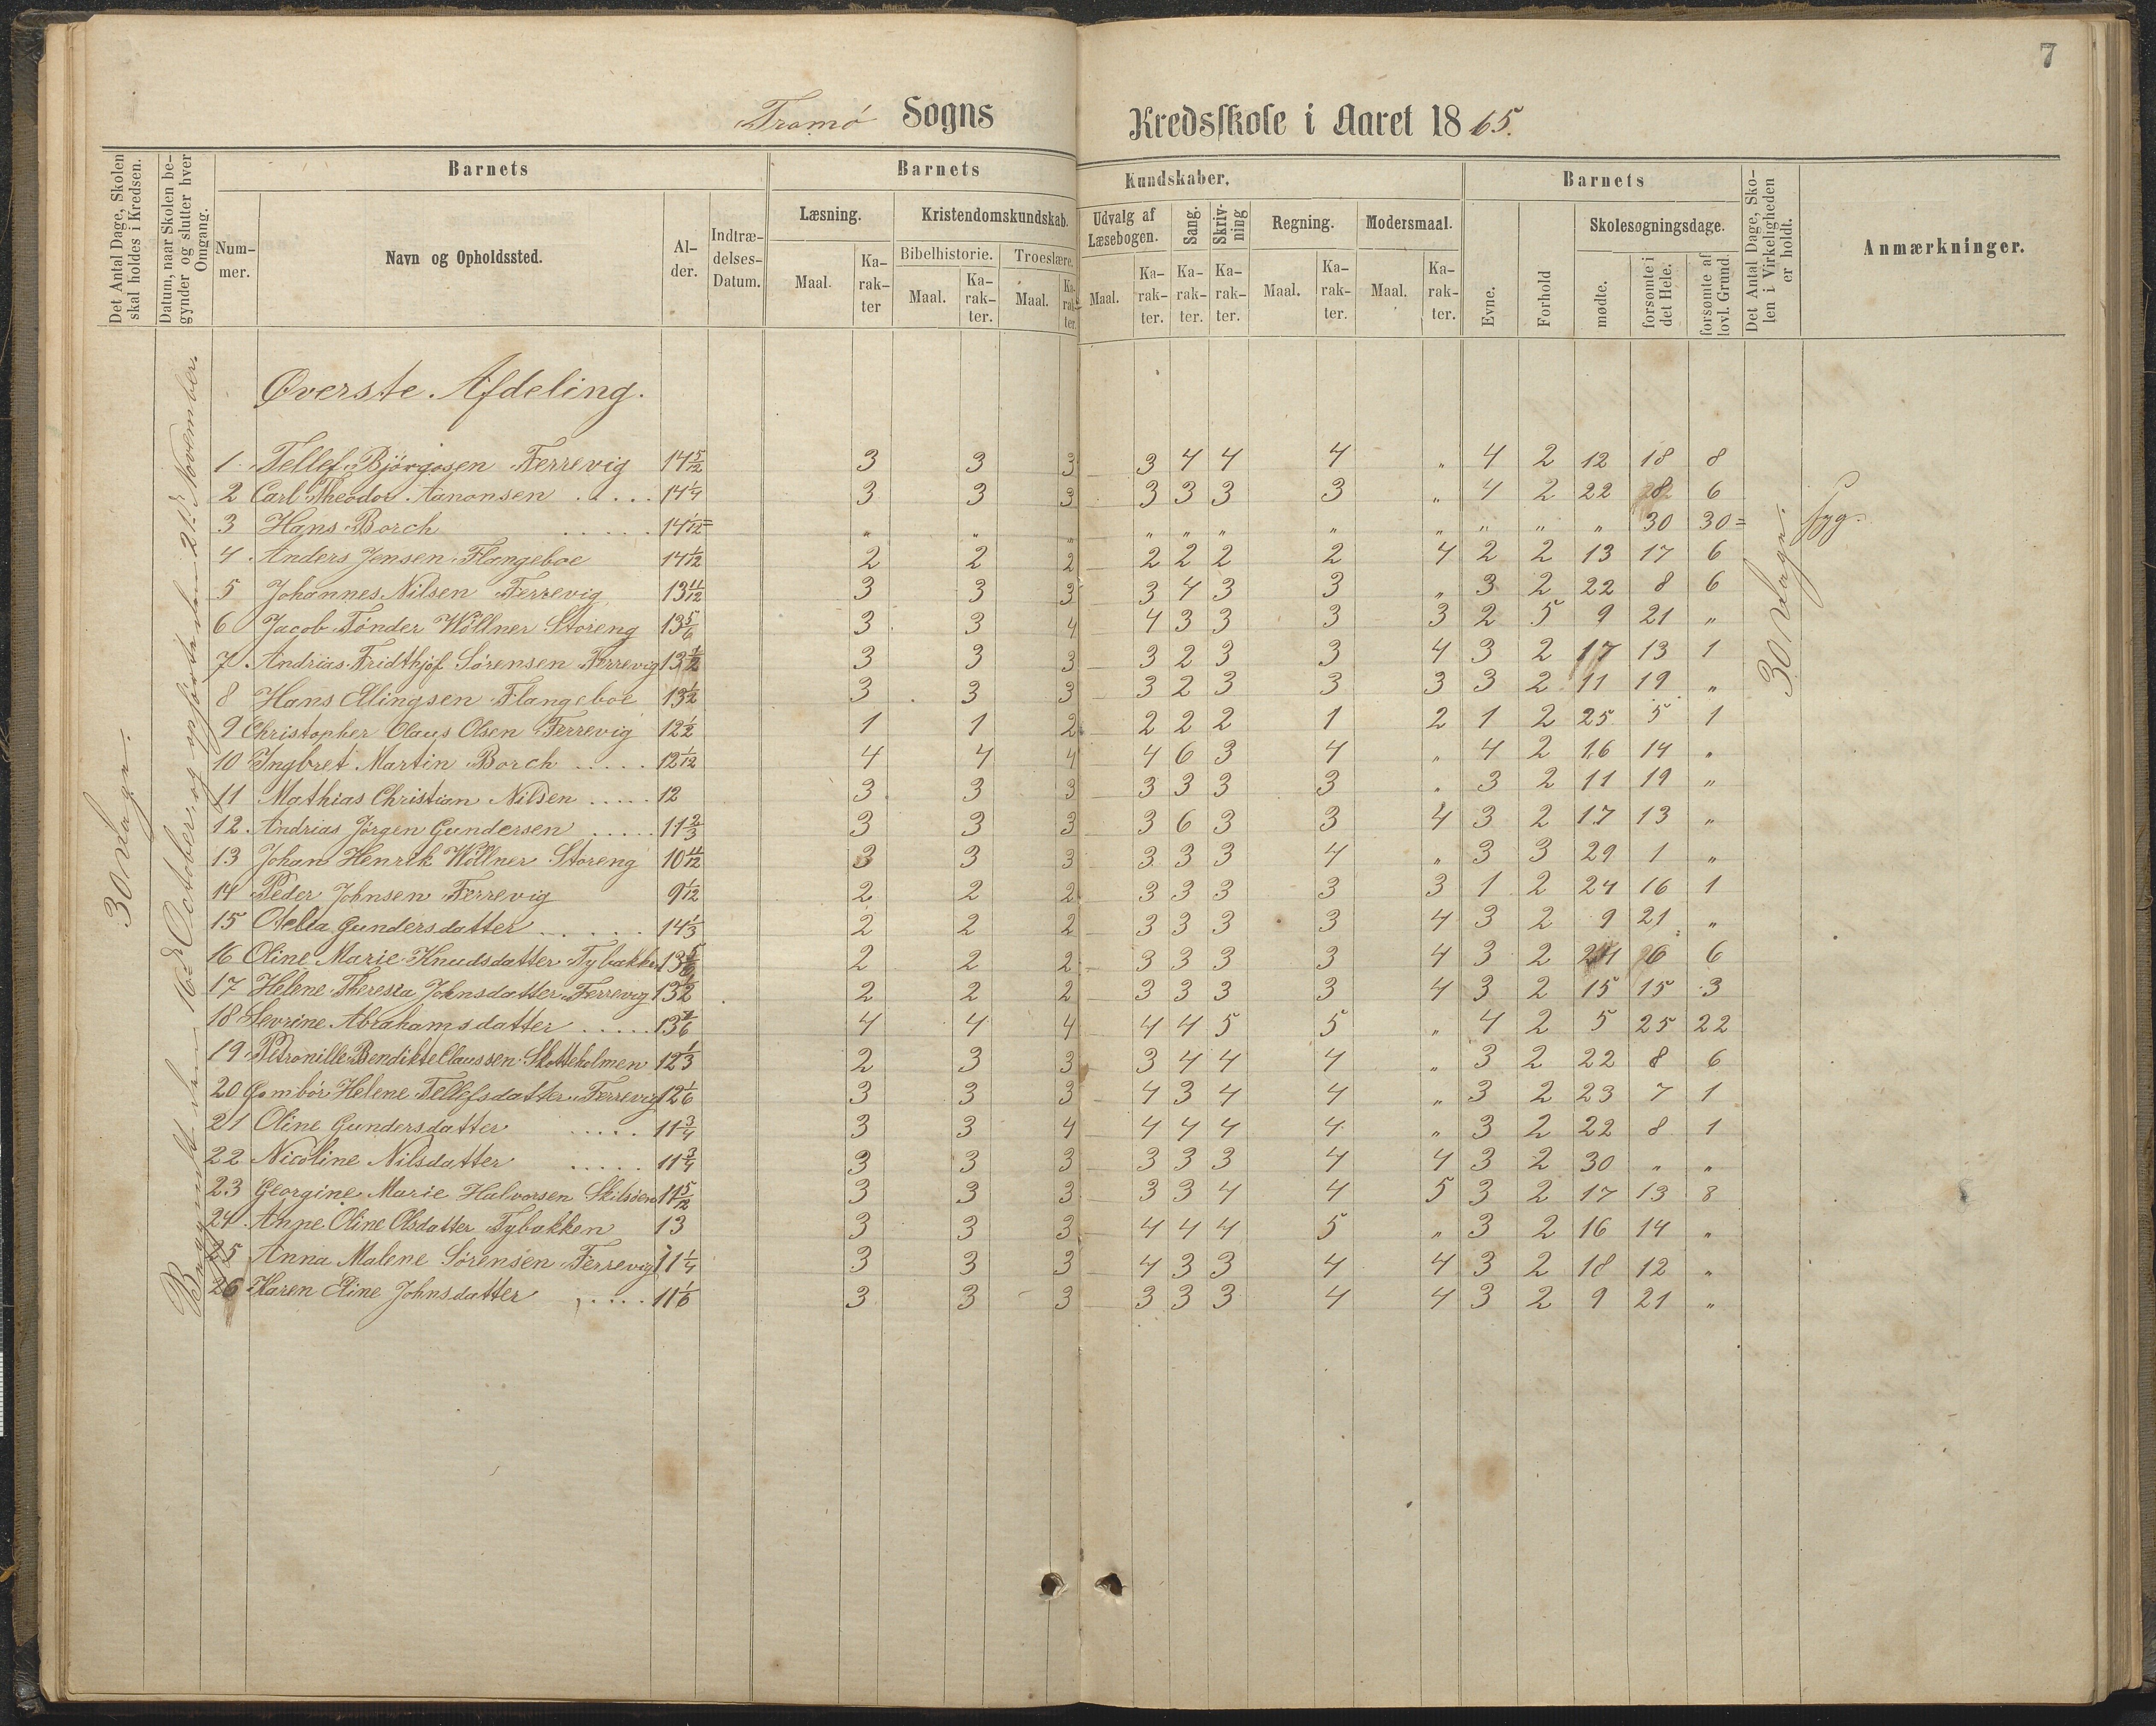 7
Tromø Sogns Kredsskole i Aaret 1865.
Det Antal Dage, Skolen skal holdes i Kredsen.
Datum, naar Skolen begynder og slutter hver Omgang.
Barnets
Barnets Kundskaber.
Barnets
Det Antal Dage, Skolen i Virkeligheden er holdt.
Anmærkninger.
Nummer.
Navn og Opholdssted.
Alder.
Indtrædelses-Datum.
Læsning.
Kristendomskundskab.
Udvalg af Læsebogen.
Sang.
Skrivning
Regning.
Modersmaal.
Evne.
Forhold
Skolesøgningsdage.
Bibelhistorie.
Troeslære.
Maal.
Karakter
Maal.
Karakter.
Maal.
Karakter.
Maal.
Karakter.
Karakter.
Karakter.
Maal.
Karakter.
Maal.
Karakter.
mødte.
forsømte i det Hele.
forsømte af lovl. Grund.
30 Dage.
Begyndt den 16de October og opført den 21de November.
Øverste Afdeling.
1 Tellef Bjørgosen Færrevig 14 5/12 3 3 3 3 4 4 4 " 4 2 12 18 8
2 Carl Theodor Aanonsen ..... 14 1/4 3 3 3 3 3 3 3 " 4 2 22 8 6
3 Hans Borch ..... 14 1/12 = " " " " " " " " " " " 30 30 = syg.
4 Anders Jensen Flangeboe 14 1/12 2 2 2 2 2 2 2 4 2 2 13 17 6
5 Johannes Nilsen Færrevig 13 11/12 3 3 3 3 4 3 3 " 3 2 22 8 6
6 Jacob Tønder Wöllner Storeng 13 5/6 3 3 4 4 3 3 3 3 2 5 9 21 "
7 Andrias Fridthjof Sörensen Færrevig 13 1/2 3 3 3 3 2 3 3 4 3 2 17 13 1
8 Hans Ellingsen Flangeboe 13 1/2 3 3 3 3 2 3 3 3 3 2 11 19 "
9 Christopher Olaus Olsen Færrevig 12 1/2 1 1 2 2 2 2 1 2 1 2 25 5 1
10 Ingbret Martin Borch ..... 12 1/12 4 4 4 4 6 3 4 " 4 2 16 14 "
11 Mathias Christian Nilsen ..... 12 3 3 3 3 3 3 3 " 3 2 11 19 "
12 Andrias Jörgen Gundersen ..... 11 2/3 3 3 3 3 6 3 3 4 3 2 17 13 "
13 Johan Henrik Wöllner Storeng 10 11/12 3 3 3 3 3 3 4 " 3 3 29 1 "
14 Peder Johnsen Færrevig 9 1/12 2 2 2 3 3 3 3 3 1 2 24 16 1
15 Otelia Gundersdatter ..... 14 1/3 2 2 2 3 3 3 3 4 3 2 9 21 "
16 Oline Marie Knudsdatter Tybakken 13 5/6 2 2 2 3 3 3 3 4 3 2 24 6 6
17 Helene Theresia Johnsdatter Færrevig 13 1/2 2 2 2 3 3 3 3 4 3 2 15 15 3
18 Sevrine Abrahamsdatter ..... 13 1/6 4 4 4 4 4 5 5 " 4 2 5 25 22
19 Petronille Bendikte Claussen Skotteholmen 12 1/3 2 3 3 3 4 4 4 " 3 2 22 8 6
20 Gombör Helene Tellefsdatter Færrevig 12 1/6 3 3 3 4 3 4 4 " 3 2 23 7 1
21 Oline Gundersdatter ..... 11 3/4 3 3 4 4 4 4 4 " 3 2 22 8 1
22 Nicoline Nilsdatter ..... 11 3/4 3 3 3 3 3 3 4 4 3 2 30 " "
23 Georgine Marie Halvorsen Skilsöen 11 5/12 3 3 3 3 3 4 4 5 3 2 17 13 8
24 Anne Oline Olsdatter Tybakken 13 3 3 3 4 4 4 5 " 3 2 16 14 "
25 Anna Malene Sörensen Færrevig 11 1/4 3 3 3 4 3 3 4 4 3 2 18 12 "
26 Karen Eline Johnsdatter ..... 11 1/6 3 3 3 3 3 3 4 4 3 2 9 21 "
30 Dage.